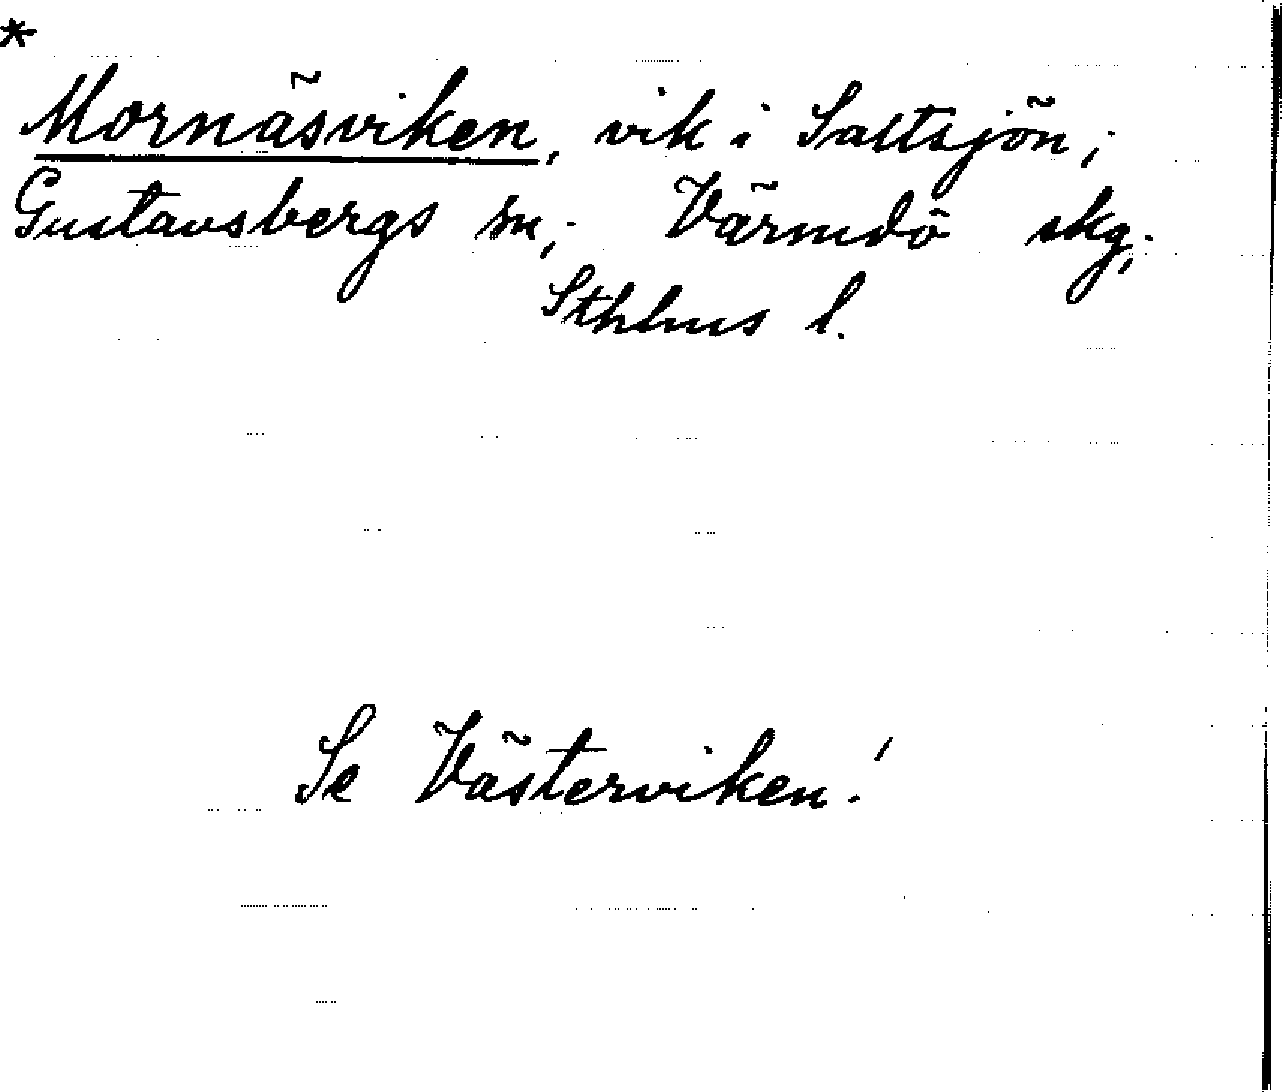 *
Mornäsviken, vik i Saltsjön;
Gustavsbergs sn; Värmdö skg;
Sthlms l.
Se Västerviken!